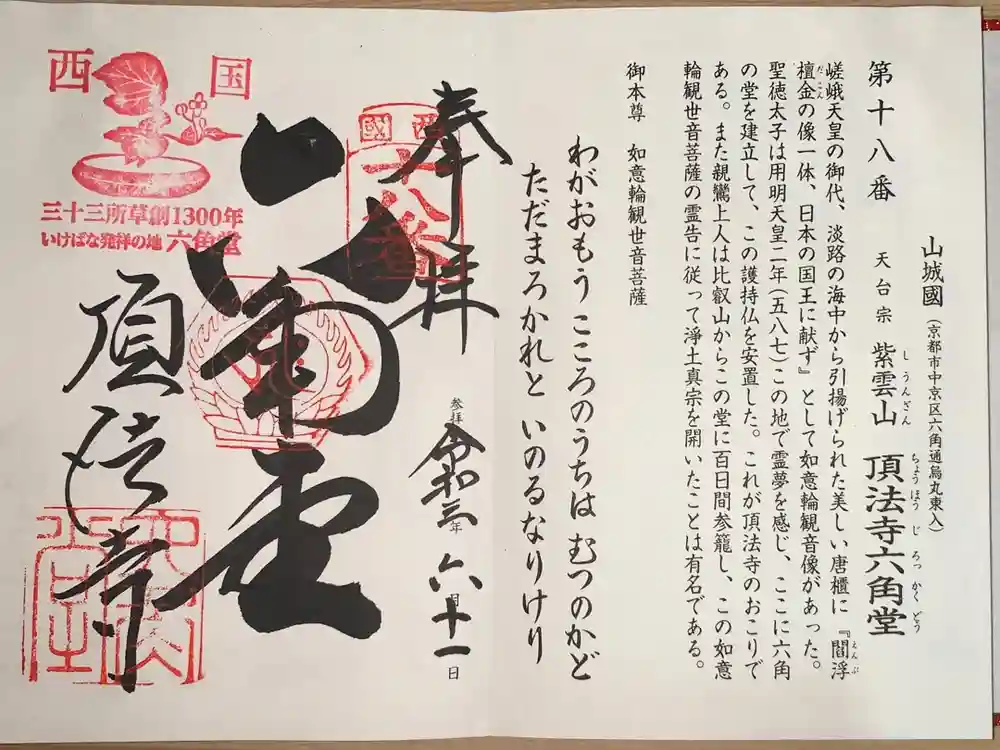 山城國(京都市中京区六角通烏丸東入)
第十八番 天台宗 紫雲山 頂法寺六角堂
しうんざん ちょうほうじろっかくどう
嵯峨天皇の御代、淡路の海中から引揚げられた美しい唐櫃に『閻浮
えんぶ
檀金の像一体、日本の国王に献ず』として如意輪観音像があった。
だこん
聖徳太子は用明天皇二年(五八七)この地で霊夢を感じ、ここに六角
の堂を建立して、この護持仏を安置した。これが頂法寺のおこりで
ある。また親鸞上人は比叡山からこの堂に百日間参籠し、この如意
輪観世音菩薩の霊告に従って淨土真宗を開いたことは有名である。
御本尊 如意輪観世音菩薩
わがおもう こころのうちは むつのかど
ただまろかれと いのるなりけり
奉拝
参拝 令和三年 六月十一日
西國
十八番
六角堂
頂法寺
西国
三十三所草創1300年
いけばな発祥の地 六角堂